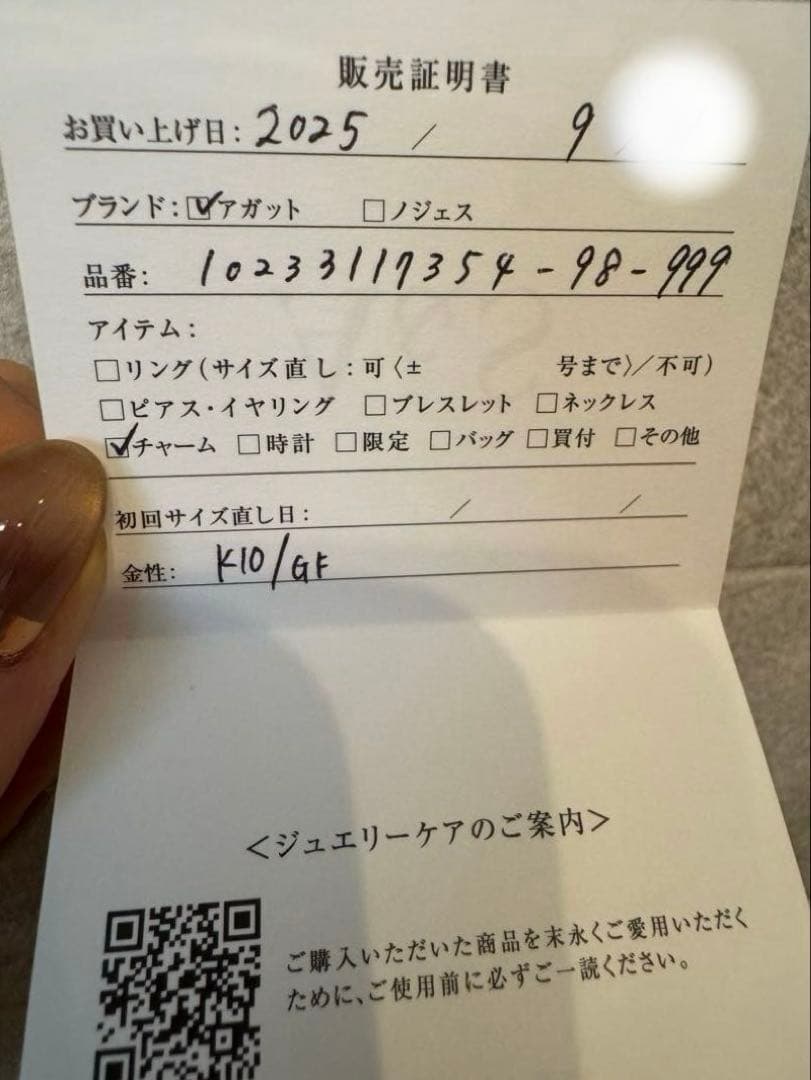 販売証明書
お買い上げ日: 2025 / 9
ブランド: ☑アガット □ノジェス
品番: 10233117354-98-999
アイテム:
□リング(サイズ直し: 可〈± 号まで〉/不可)
□ピアス・イヤリング □ブレスレット □ネックレス
☑チャーム □時計 □限定 □バッグ □買付 □その他
初回サイズ直し日: / /
金性: K10/GF
<ジュエリーケアのご案内>
ご購入いただいた商品を末永くご愛用いただく
ために、ご使用前に必ずご一読ください。